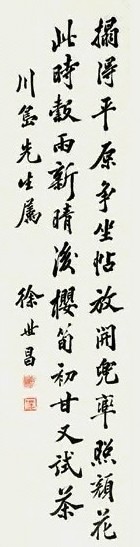 搨得平原争坐帖放開兜率照顏花
此時穀雨新晴後櫻筍初甘又試茶
川島先生屬
徐世昌